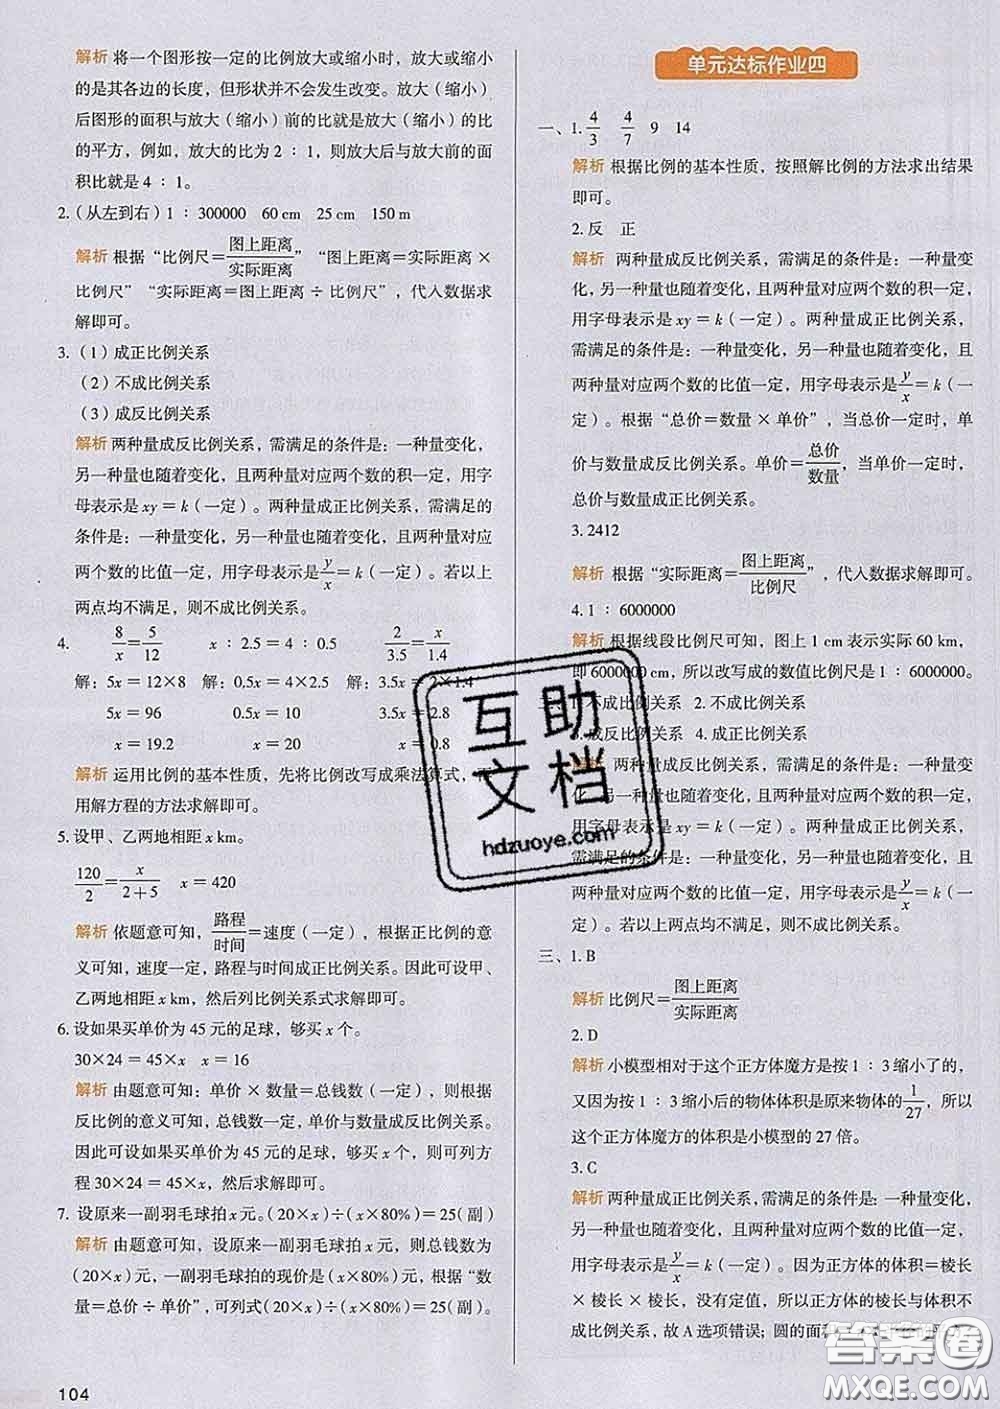 解析 将一个图形按一定的比例放大或缩小时，放大或缩小
的是其各边的长度，但形状并不会发生改变。放大（缩小）
后图形的面积与放大（缩小）前的比就是放大（缩小）的比
的平方，例如，放大的比为2：1，则放大后与放大前的面
积比就是4：1。
2.（从左到右）1：300000 60 cm 25 cm 150 m
解析 根据“比例尺=图上距离/实际距离” “图上距离=实际距离×
比例尺” “实际距离=图上距离÷比例尺”，代入数据求
解即可。
3.（1）成正比例关系
（2）不成比例关系
（3）成反比例关系
解析 两种量成反比例关系，需满足的条件是：一种量变化，
另一种量也随着变化，且两种量对应两个数的积一定，用字
母表示是xy=k（一定）。两种量成正比例关系，需满足的
条件是：一种量变化，另一种量也随着变化，且两种量对应
两个数的比值一定，用字母表示是y/x=k（一定）。若以上
两点均不满足，则不成比例关系。
4. 8/x=5/12 x：2.5=4：0.5 2/3.5=x/1.4
解：5x=12×8 解：0.5x=4×2.5 解：3.5x=2×1.4
5x=96 0.5x=10 3.5x=2.8
x=19.2 x=20 x=0.8
解析 运用比例的基本性质，先将比例改写成乘法算式，再
用解方程的方法求解即可。
5.设甲、乙两地相距x km。
120/2=x/(2+5) x=420
解析 依题意可知，路程/时间=速度（一定），根据正比例的意
义可知，速度一定，路程与时间成正比例关系。因此可设甲、
乙两地相距x km，然后列比例关系式求解即可。
6.设如果买单价为45元的足球，够买x个。
30×24=45×x x=16
解析 由题意可知：单价×数量=总钱数（一定），则根据
反比例的意义可知，总钱数一定，单价与数量成反比例关系。
因此可设如果买单价为45元的足球，够买x个，则可列方
程30×24=45×x，求解即可。
7. 设原来一副羽毛球拍x元。（20×x）÷（x×80%）=25（副）
解析 由题意可知，设原来一副羽毛球拍x元，则总钱数为
（20×x）元，一副羽毛球拍的现价是（x×80%）元，根据“数
量=总价÷单价”，可列式（20×x）÷（x×80%）=25（副）。
104
单元达标作业四
一、1. 4/3 4/7 9 14
解析 根据比例的基本性质，按照解比例的方法求出结果
即可。
2.反 正
解析 两种量成反比例关系，需满足的条件是：一种量变化，
另一种量也随着变化，且两种量对应两个数的积一定，
用字母表示是xy=k（一定）。两种量成正比例关系，
需满足的条件是：一种量变化，另一种量也随着变化，且
两种量对应两个数的比值一定，用字母表示是y/x=k（一
定）。根据“总价=数量×单价”，当总价一定时，单
价与数量成反比例关系。单价=总价/数量，当单价一定时，
总价与数量成正比例关系。
3.2412
解析 根据“实际距离=图上距离/比例尺”，代入数据求解即可。
4.1：6000000
解析 根据线段比例尺可知，图上1 cm表示实际60 km，
即6000000 cm，所以改写成的数值比例尺是1：6000000。
1.不成比例关系 2.不成比例关系
3.成反比例关系 4.成正比例关系
解析 两种量成反比例关系，需满足的条件是：一种量变
化，另一种量也随着变化，且两种量对应两个数的积一
定，用字母表示是xy=k（一定）。两种量成正比例关系，
需满足的条件是：一种量变化，另一种量也随着变化，且
两种量对应两个数的比值一定，用字母表示是y/x=k（一
定）。若以上两点均不满足，则不成比例关系。
三、1.B
解析 比例尺=图上距离/实际距离
2.D
解析 小模型相对于这个正方体魔方是按1：3缩小了的，
又因为按1：3缩小后的物体体积是原来物体的1/27，所以
这个正方体魔方的体积是小模型的27倍。
3.C
解析 两种量成正比例关系，需满足的条件是：一种量变化，
另一种量也随着变化，且两种量对应两个数的比值一定，
用字母表示是y/x=k（一定）。因为正方体的体积=棱长
×棱长×棱长，没有定值，所以正方体的棱长与体积不
成比例关系，故A选项错误；圆的面积
互助
文档
hdzuoye.com
答案圈
MXQE.COM